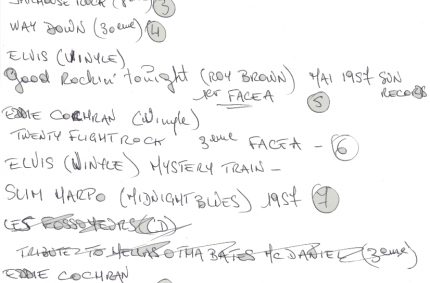 JAILHOUSE ROCK (3
WAY DOWN (30eme) 4
ELVIS (VINYLE)
Good Rockin' tonight (ROY BROWN) MAI 1957 SUN RECORDS
1er FACE A 5
EDDIE COCHRAN (Vinyle)
TWENTY FLIGHT ROCK 3eme FACE A - 6
ELVIS (VINYLE) MYSTERY TRAIN -
SLIM HARPO (MIDNIGHT BLUES) 1957 7
LES FOSSOYEURS (CD)
TRIBUTE TO OTHA BATES Mc DANIEL (3eme)
EDDIE COCHRAN